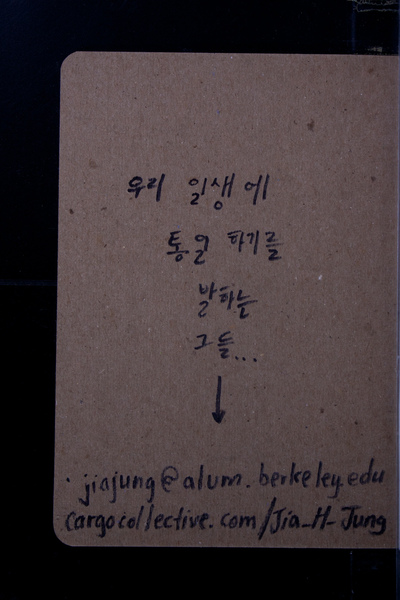 우리 일생에
통일 하기를
발하는
그들...
jiajung@alum.berkeley.edu
cargocollective.com/Jia-H-Jung